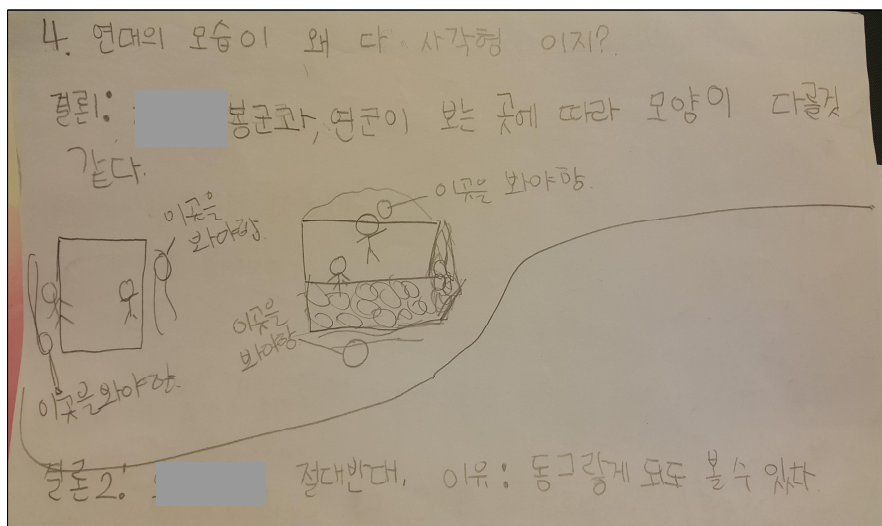 4. 연대의 모습이 왜 다 사각형 이지?
결론1: 봉군과, 연군이 보는 곳에 따라 모양이 다를것
같다.
이곳을
봐야함.
이곳을 봐야함.
이곳을
봐야함
이곳을 봐야함.
결론2: 절대반대, 이유: 동그랗게 되도 볼 수 있다